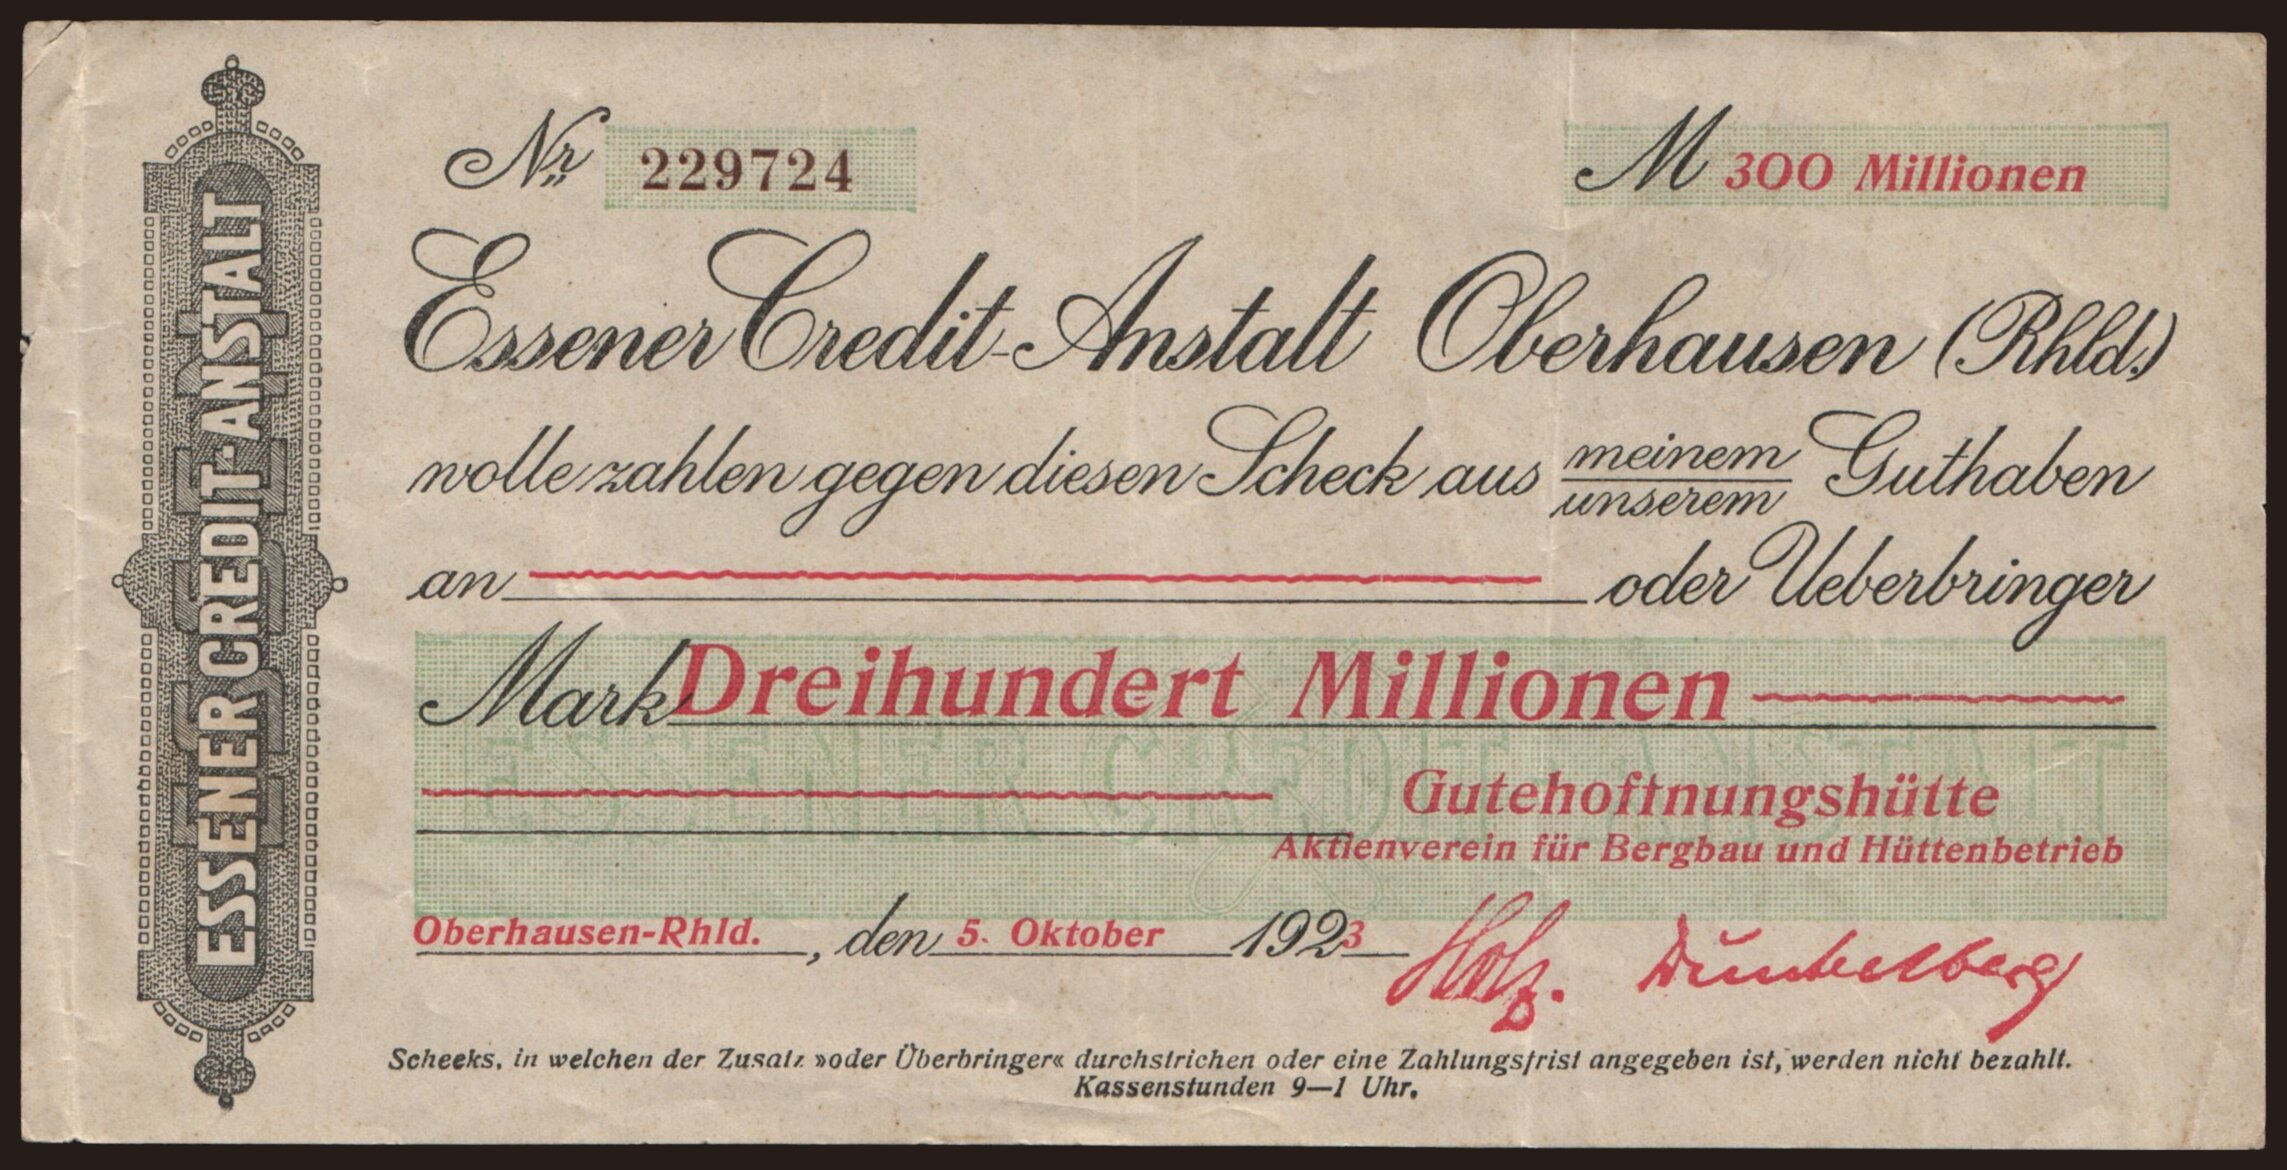 ESSENER CREDIT-ANSTALT
Nr. 229724
M 300 Millionen
Essener Credit-Anstalt Oberhausen (Rhld.)
wolle zahlen gegen diesen Scheck aus meinem Guthaben
unserem
an oder Ueberbringer
Mark Dreihundert Millionen
ESSENER CREDIT-ANSTALT
Gutehoffnungshütte
Aktienverein für Bergbau und Hüttenbetrieb
Oberhausen-Rhld., den 5. Oktober 1923
Holz. Dunkelberg
Schecks, in welchen der Zusatz »oder Überbringer« durchstrichen oder eine Zahlungsfrist angegeben ist, werden nicht bezahlt.
Kassenstunden 9—1 Uhr.